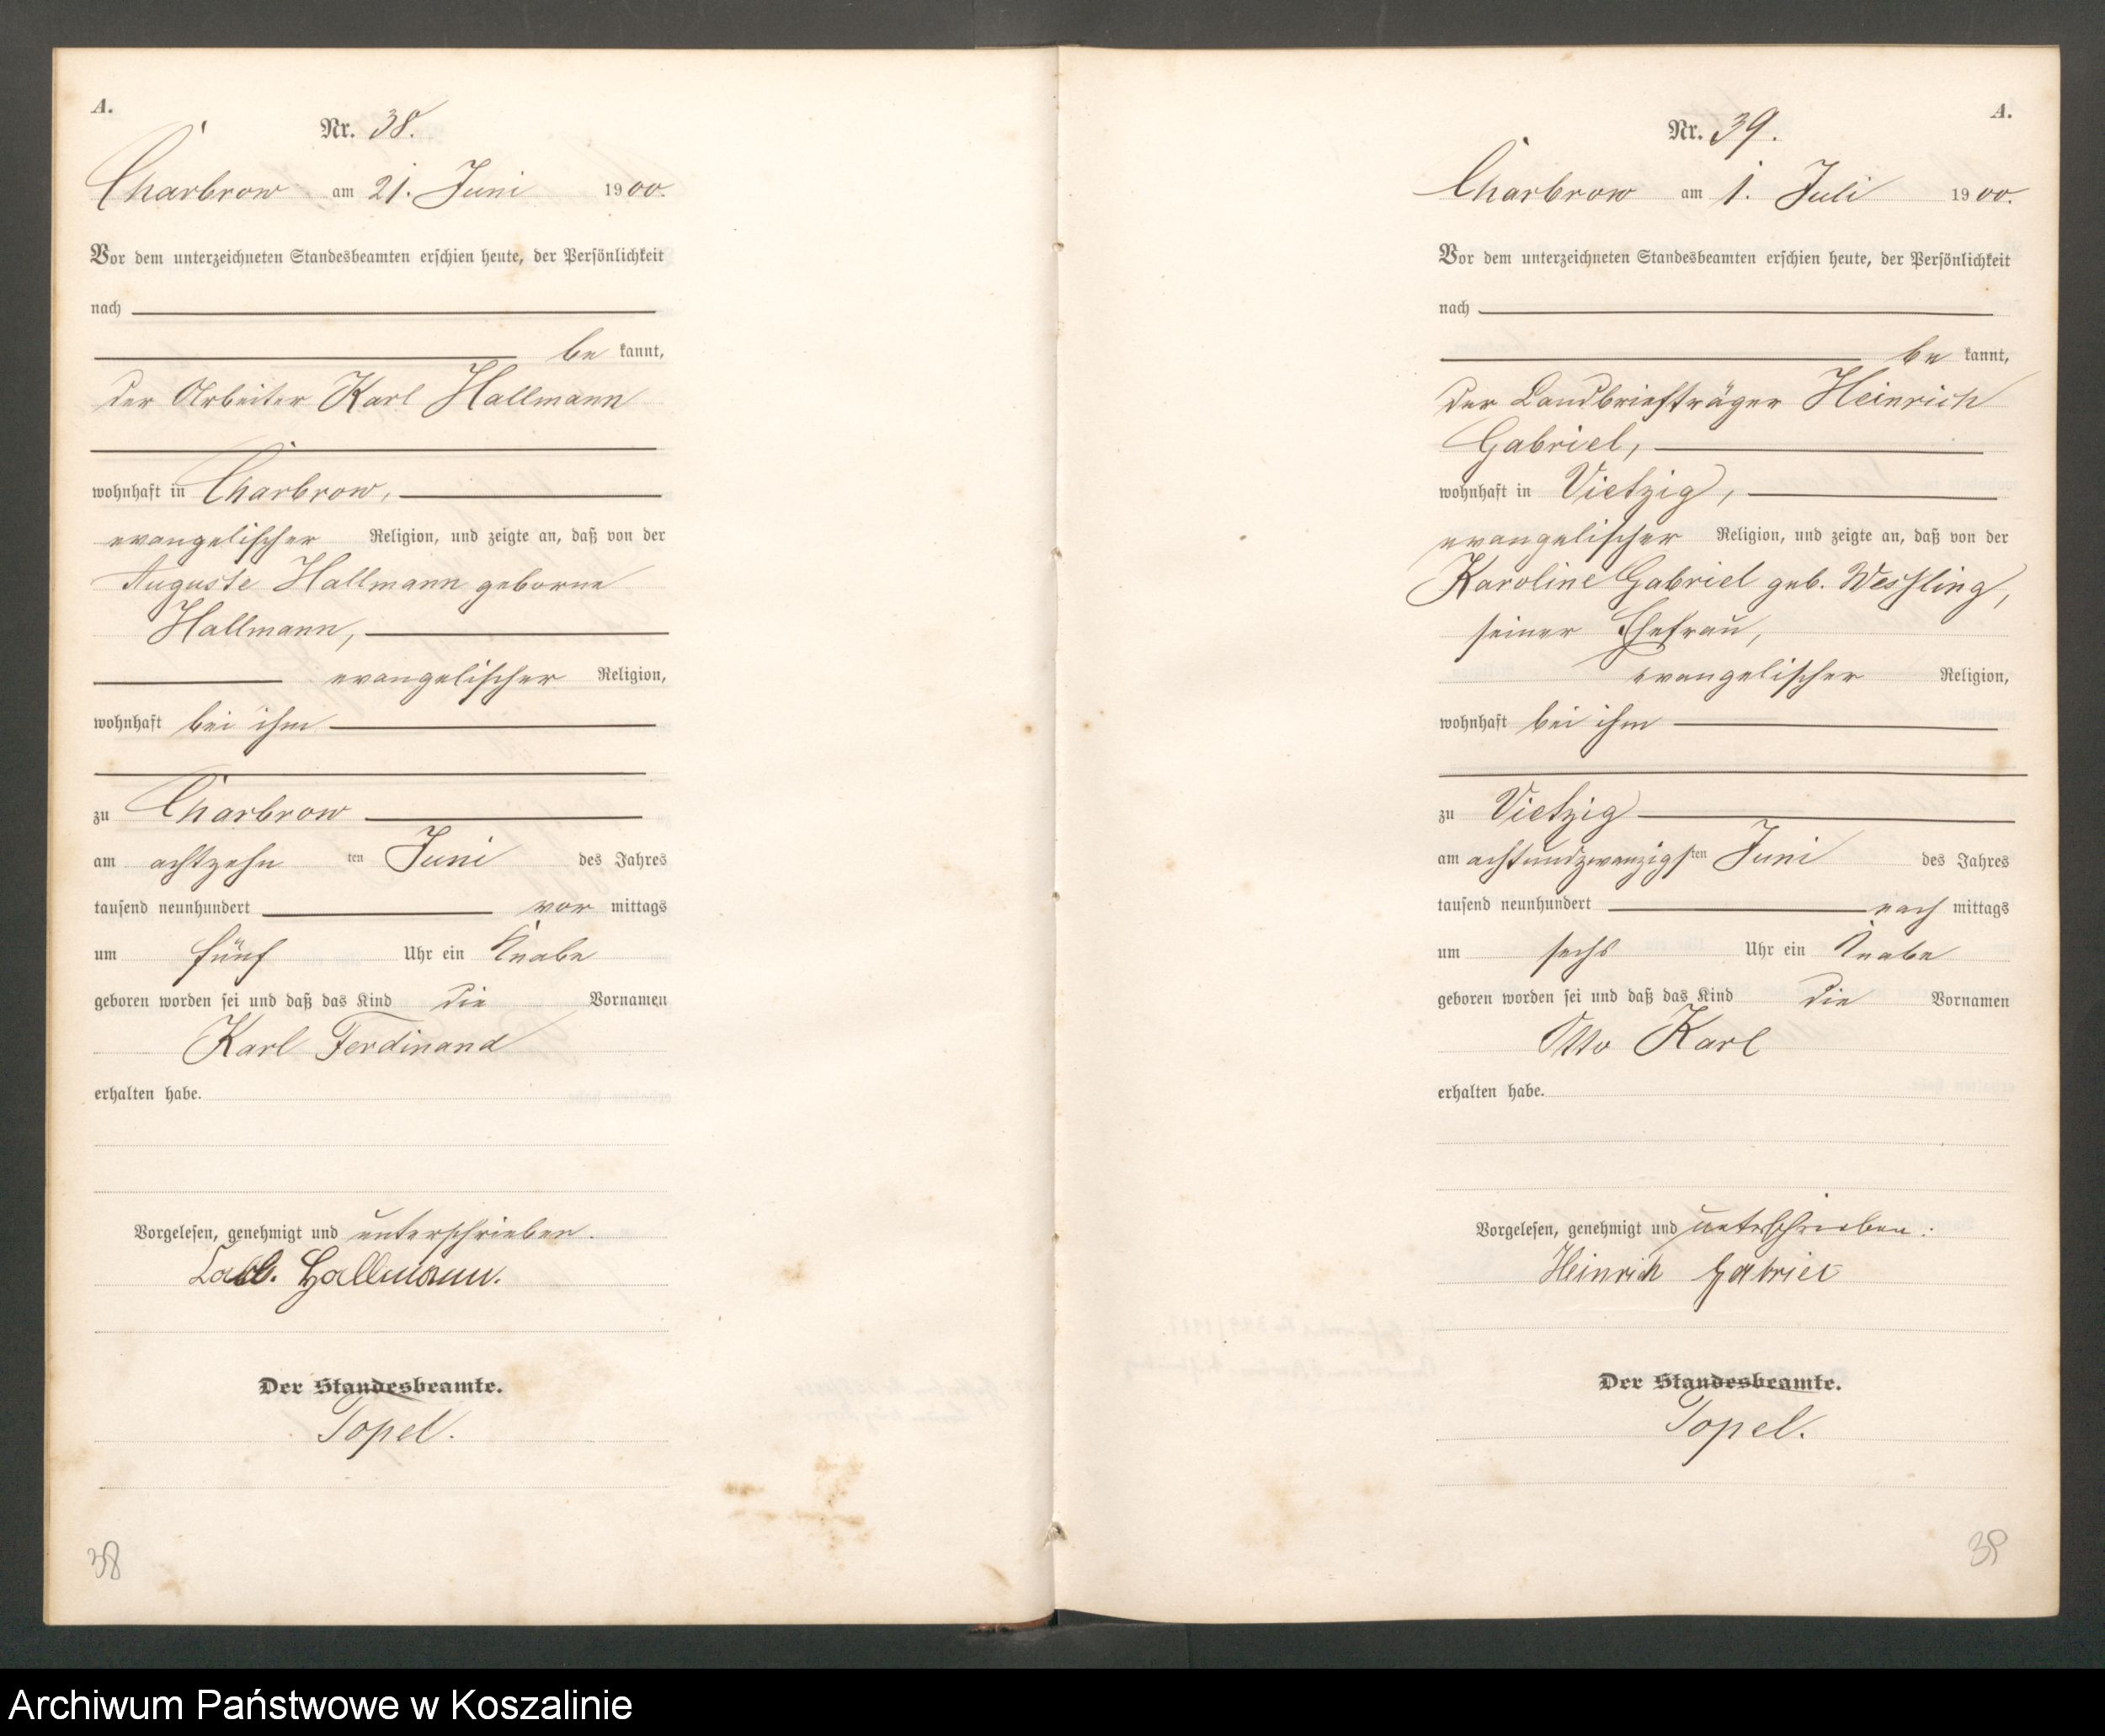 A.
Nr. 38.
Charbrow am 21. Juni 1900.
Vor dem unterzeichneten Standesbeamten erschien heute, der Persönlichkeit
nach
be kannt,
der Arbeiter Karl Hallmann
wohnhaft in Charbrow,
evangelischer Religion, und zeigte an, daß von der
Auguste Hallmann geborne
Hallmann,
evangelischer Religion,
wohnhaft bei ihm
zu Charbrow
am achtzehn ten Juni des Jahres
tausend neunhundert vor mittags
um fünf Uhr ein Knabe
geboren worden sei und daß das Kind die Vornamen
Karl Ferdinand
erhalten habe.
Vorgelesen, genehmigt und unterschrieben.
Carl. Hallmann.
Der Standesbeamte.
Topel.
38
A.
Nr. 39.
Charbrow am 1. Juli 1900.
Vor dem unterzeichneten Standesbeamten erschien heute, der Persönlichkeit
nach
be kannt,
der Landbriefträger Heinrich
Gabriel,
wohnhaft in Vietzig,
evangelischer Religion, und zeigte an, daß von der
Karoline Gabriel geb. Wessling,
seiner Ehefrau,
evangelischer Religion,
wohnhaft bei ihm
zu Vietzig
am achtundzwanzigsten Juni des Jahres
tausend neunhundert nach mittags
um sechs Uhr ein Knabe
geboren worden sei und daß das Kind die Vornamen
Otto Karl
erhalten habe.
Vorgelesen, genehmigt und unterschrieben.
Heinrich Gabriel
Der Standesbeamte.
Topel.
39
Archiwum Państwowe w Koszalinie